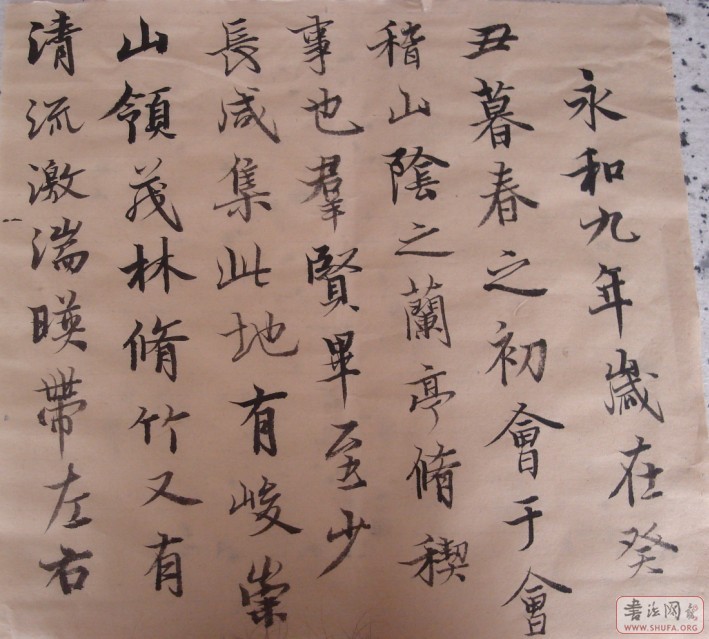 永和九年歲在癸
丑暮春之初會于會
稽山陰之蘭亭脩稧
事也羣賢畢至少
長咸集此地有峻崇
山領茂林脩竹又有
清流激湍暎帶左右
书法网
WWW.SHUFA.ORG